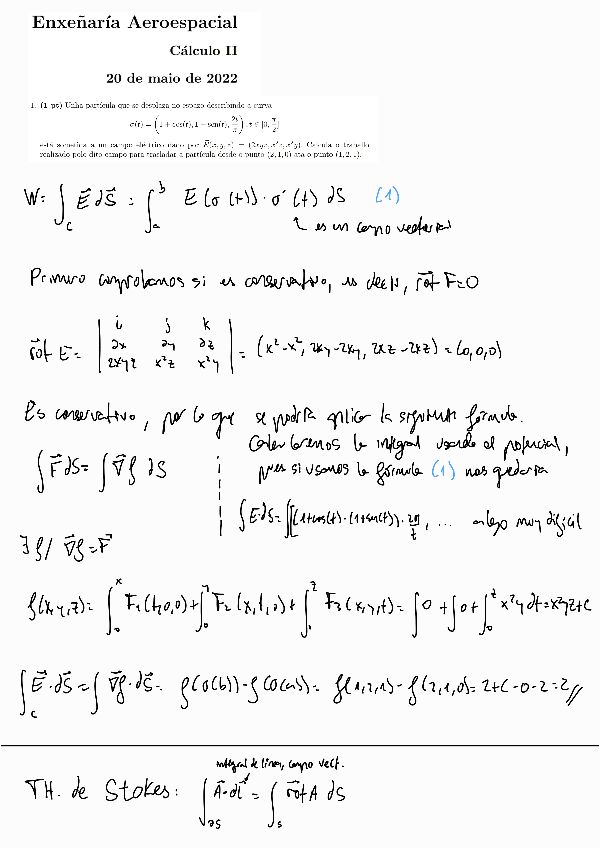 Enxeñaría Aeroespacial
Cálculo II
20 de maio de 2022
1. (1 pt) Unha partícula que se despraza no espazo describindo a curva
σ(t) = (1 + cos(t), 1 + sen(t), 2t/π), t ∈ [0, π/2]
está sometida a un campo eléctrico dado por E⃗(x, y, z) = (2xyz, x²z, x²y). Calcula o traballo
realizado polo dito campo para trasladar a partícula desde o punto (2, 1, 0) ata o punto (1, 2, 1).
W = ∫_C E⃗ dS⃗ = ∫_a^b E(σ(t)) · σ'(t) dS (1)
es un campo vectorial
Primero comprobamos si es conservativo, es decir, rot F = 0
rot E = | i j k ; ∂x ∂y ∂z ; 2xyz x²z x²y | = (x²-x², 2xy-2xy, 2xz-2xz) = (0,0,0)
Es conservativo, por lo que se podría aplicar la siguiente fórmula.
Calcularemos la integral usando el potencial,
∫ F⃗ dS = ∫ ∇⃗f dS
pues si usamos la fórmula (1) nos quedaría
∫ E·dS = ∫[(1+cos(t)·(1+sen(t))· , ... algo muy difícil
∃ f / ∇⃗f = F⃗
f(x,y,z) = ∫_0^x F₁(t,0,0) + ∫_0^y F₂(x,t,0) + ∫_0^z F₃(x,y,t) = ∫0 + ∫0 + ∫_0^z x²y dt = x²yz + C
∫_C E⃗·dS⃗ = ∫ ∇⃗f·dS⃗ = f(σ(b)) - f(σ(a)) = f(1,2,1) - f(2,1,0) = 2+C-0-2=2//
integral de línea, campo vect.
TH. de Stokes: ∫_∂S A⃗·dl⃗ = ∫_S rot A dS